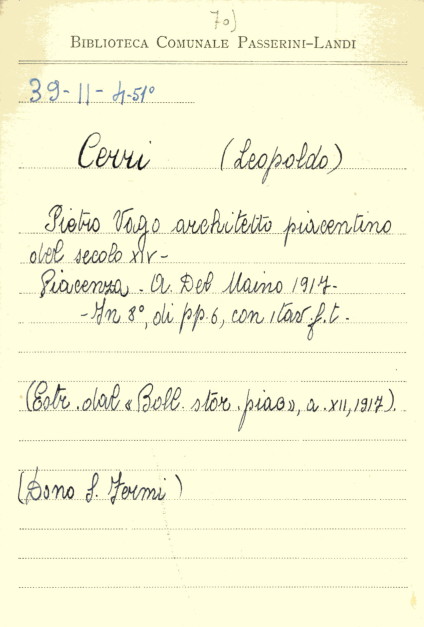 70)
BIBLIOTECA COMUNALE PASSERINI-LANDI
39-11-4-51°
Cerri (Leopoldo)
Pietro Vago architetto piacentino
del secolo XIV-
Piacenza - A. Del Maino 1917-
-In 8°, di pp. 6, con 1 tav. f. t. -
(Estr. dal «Boll. stor. piac», a. XII, 1917).
(Dono S. Fermi)